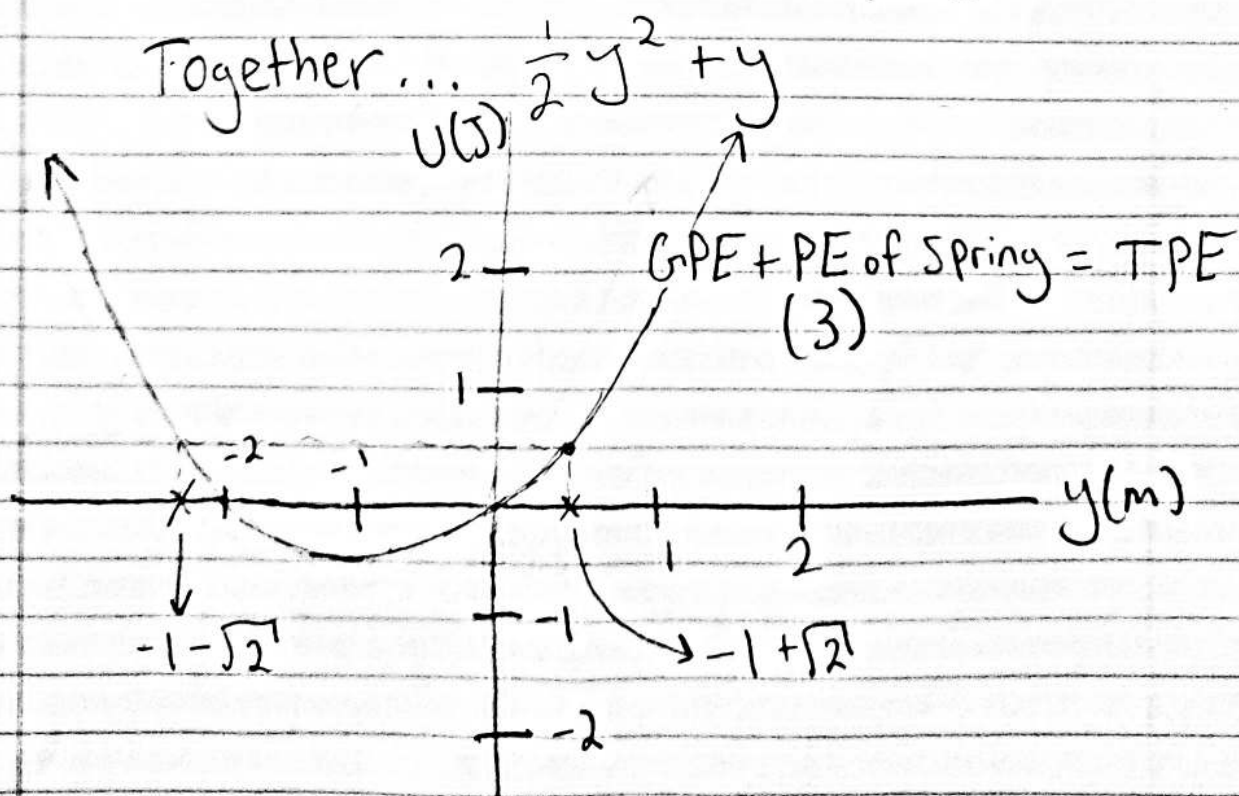 Together... 1/2 y² + y
U(J)
2
GPE + PE of Spring = TPE
(3)
1
-2 -1
y(m)
1 2
-1
-1-√2
-1+√2
-2